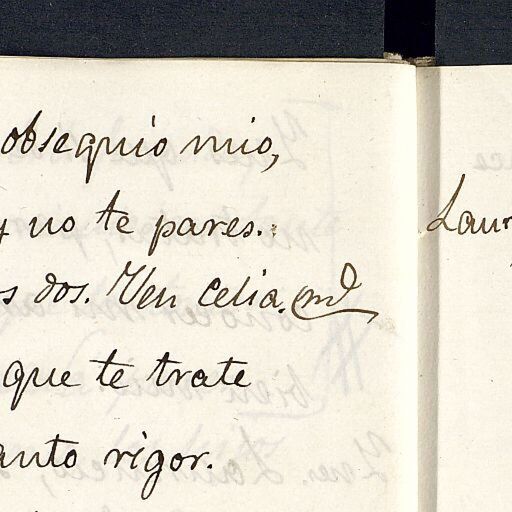 obsequio mio,
y no te pares.
s dos. Ven Celia.
que te trate
anto rigor.
Laur